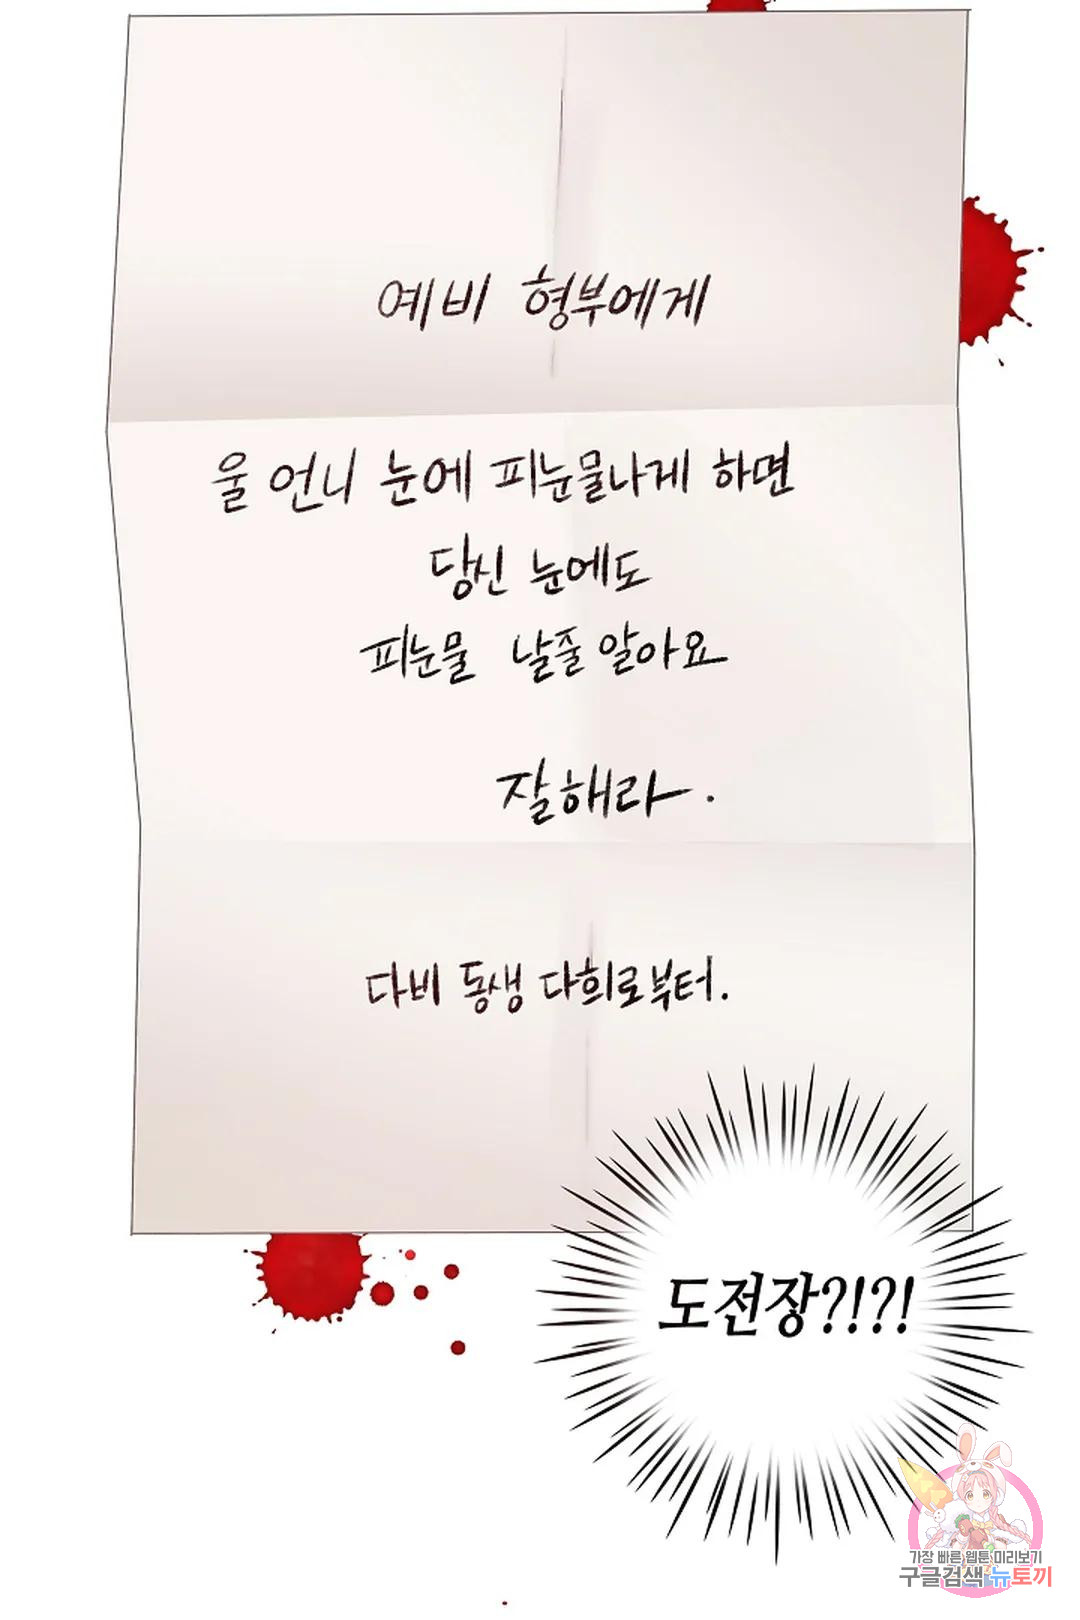 예비 형부에게
울 언니 눈에 피눈물나게 하면
당신 눈에도
피눈물 날줄 알아요
잘해라.
다비 동생 다희로부터.
도전장?!?!
가장 빠른 웹툰 미리보기
구글검색 뉴토끼